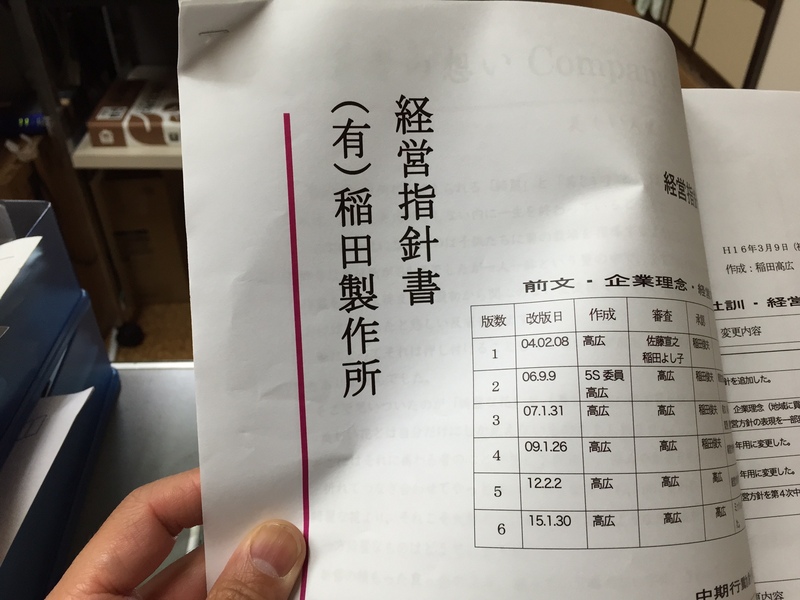 経営指針書
（有）稲田製作所
想い Company
前文・企業理念・経
版数 改版日 作成 審査 承認
1 04.02.08 高広 佐藤宣之 稲田よし子
2 06.9.9 5S委員 高広 高広
3 07.1.31 高広 高広
4 09.1.26 高広 高広
5 12.2.2 高広 高広 高広
6 15.1.30 高広 高広 高広
経営指
日16年3月9日
作成：稲田高広
社訓・経営
変更内容
針を追加した。
企業理念（地域に貢
営方針の表現を一部
年用に変更した。
年用に変更した。
営方針を第4次中
中期行動
変更内容